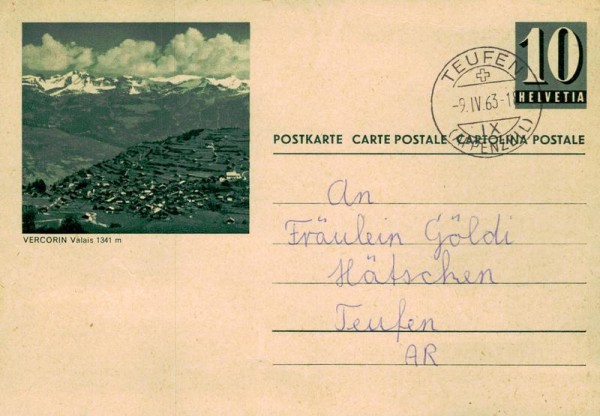 10
HELVETIA
TEUFEN
-9.IV.63-18
IX
(APPENZELL)
POSTKARTE CARTE POSTALE CARTOLINA POSTALE
VERCORIN Valais 1341 m
An
Fräulein Göldi
Hätschen
Teufen
AR